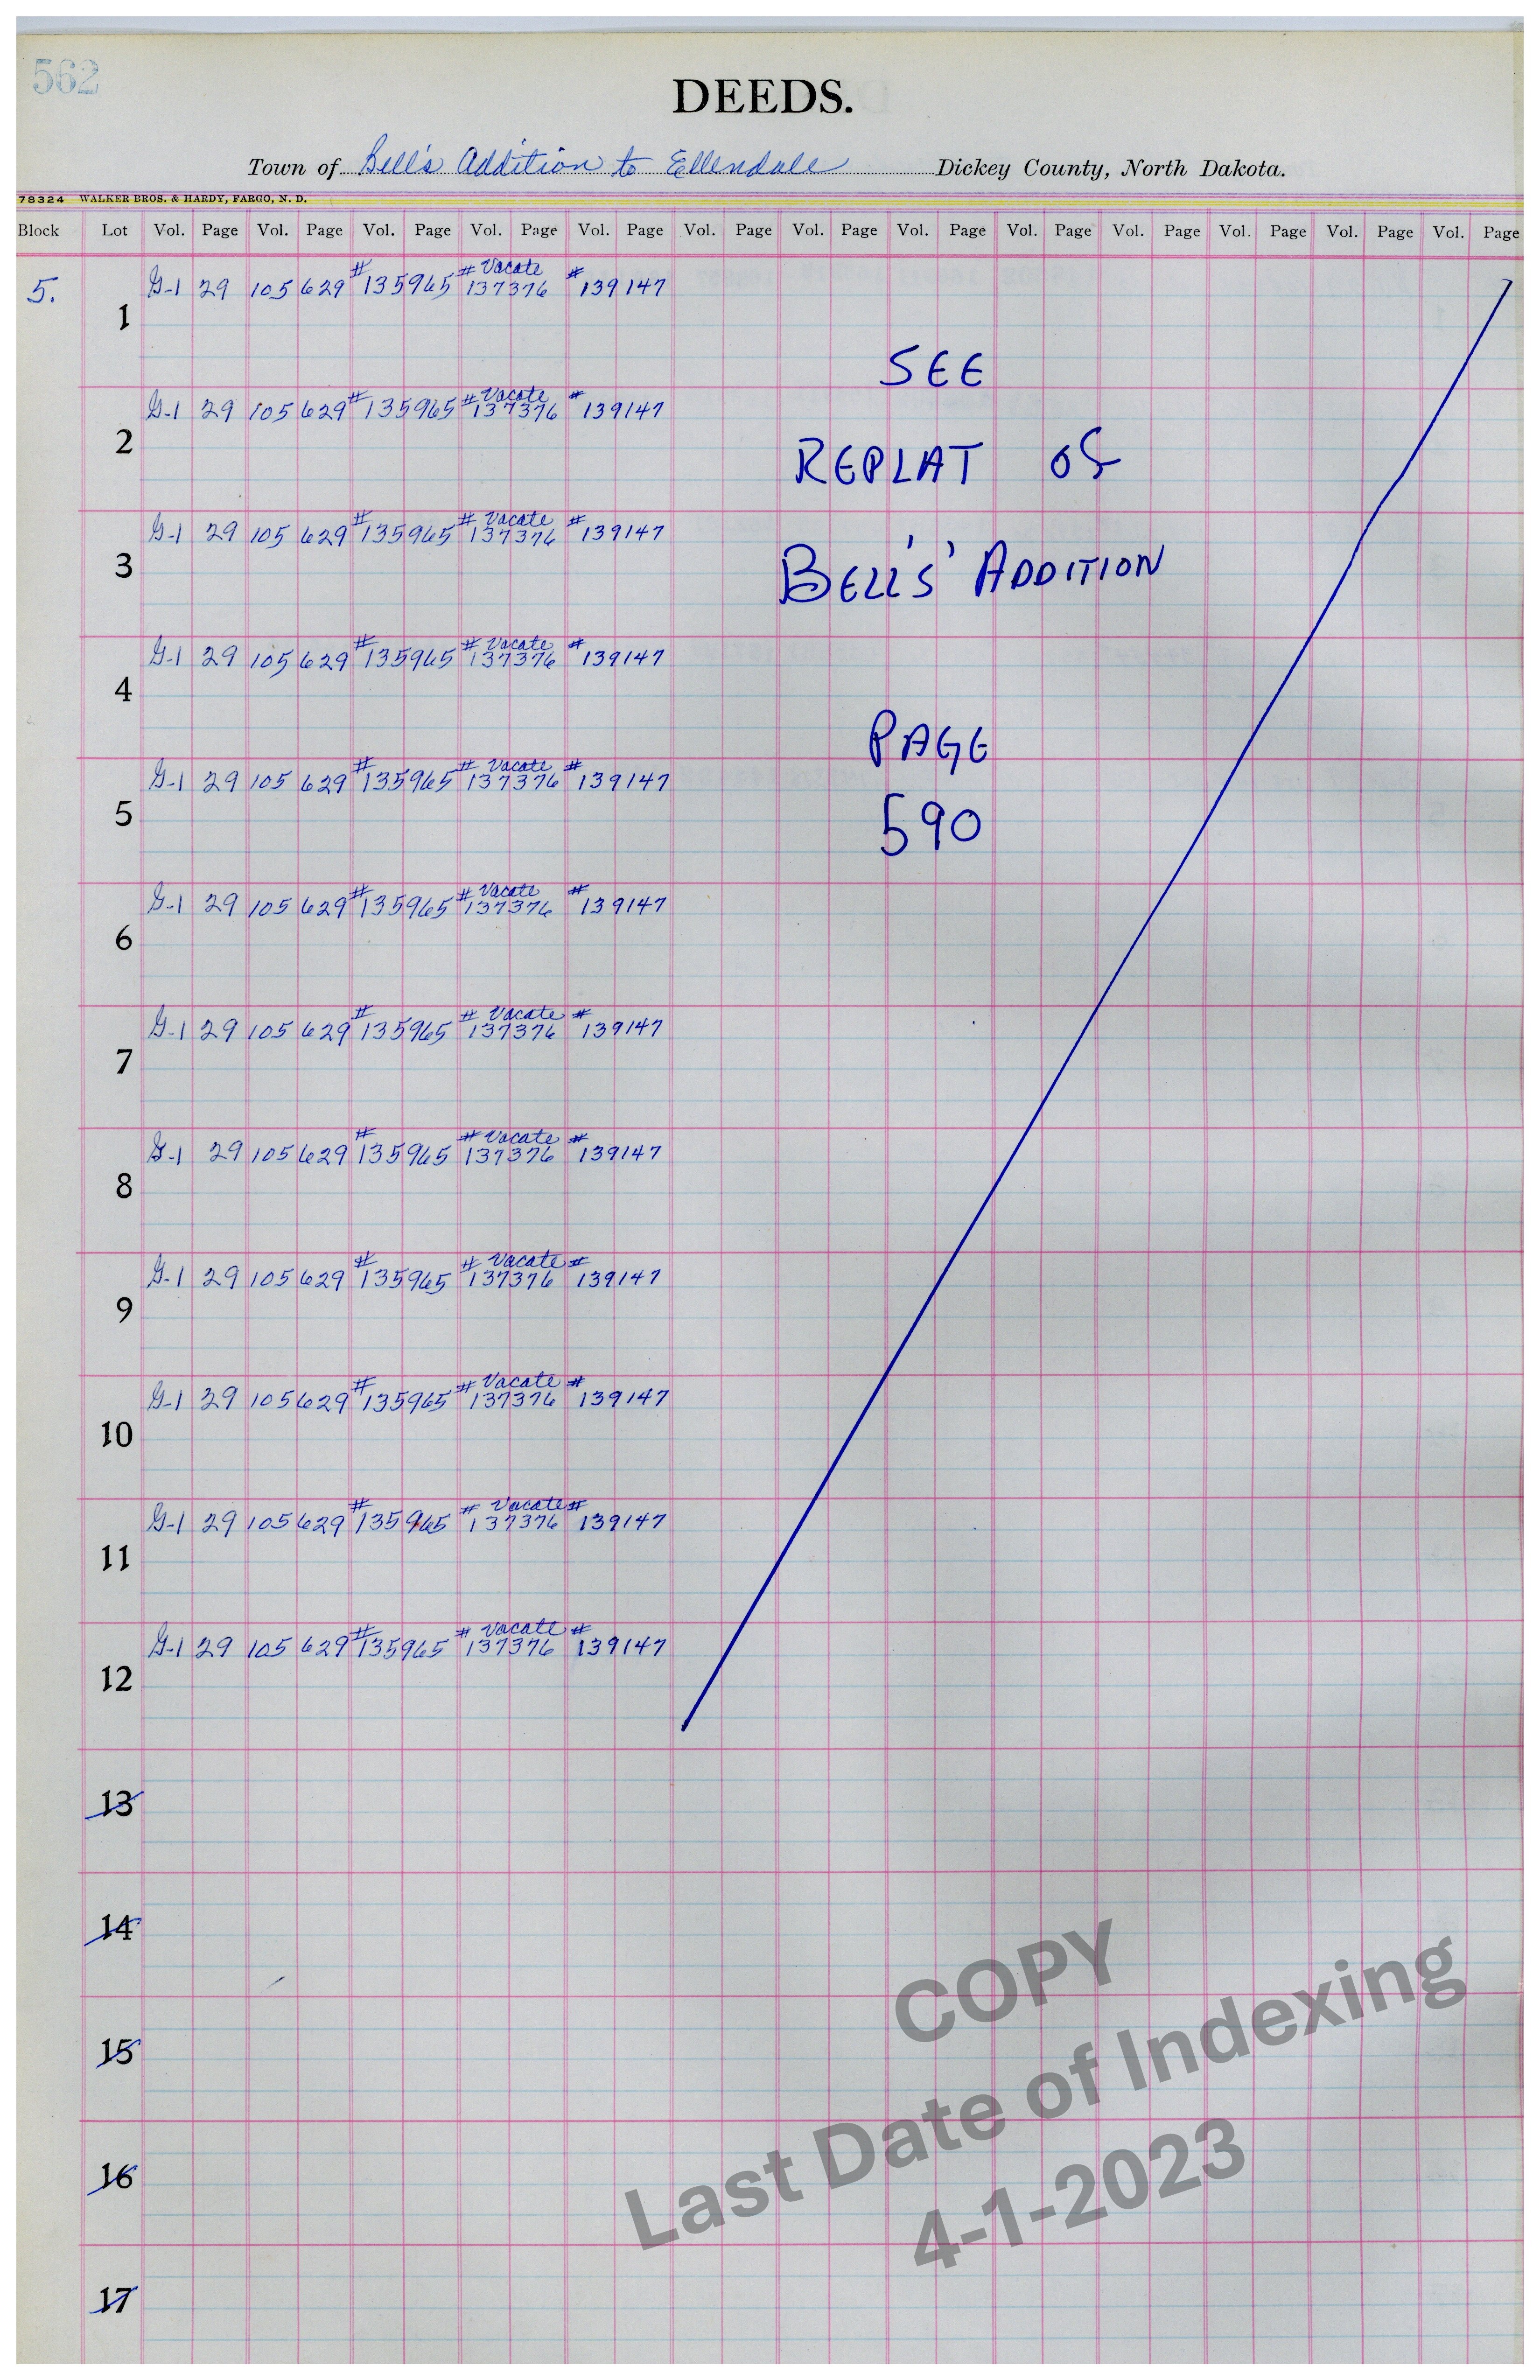 562
DEEDS.
Town of Bell's Addition to Ellendale Dickey County, North Dakota.
78324 WALKER BROS. & HARDY, FARGO, N. D.
Block Lot Vol. Page Vol. Page Vol. Page Vol. Page Vol. Page Vol. Page Vol. Page Vol. Page Vol. Page Vol. Page Vol. Page Vol. Page Vol. Page
# # Vacate #
5. G-1 29 105 629 135965 137376 139147
1
SEE
# # Vacate #
G-1 29 105 629 135965 137376 139147
2
REPLAT OF
# # Vacate #
G-1 29 105 629 135965 137376 139147
3
BELL'S' ADDITION
# # Vacate #
G-1 29 105 629 135965 137376 139147
4
PAGE
# # Vacate #
G-1 29 105 629 135965 137376 139147
5
590
# # Vacate #
G-1 29 105 629 135965 137376 139147
6
# # Vacate #
G-1 29 105 629 135965 137376 139147
7
# # Vacate #
G-1 29 105 629 135965 137376 139147
8
# # Vacate #
G-1 29 105 629 135965 137376 139147
9
# # Vacate #
G-1 29 105 629 135965 137376 139147
10
# # Vacate #
G-1 29 105 629 135965 137376 139147
11
# # Vacate #
G-1 29 105 629 135965 137376 139147
12
13
14
15
16
17
COPY
Last Date of Indexing
4-1-2023